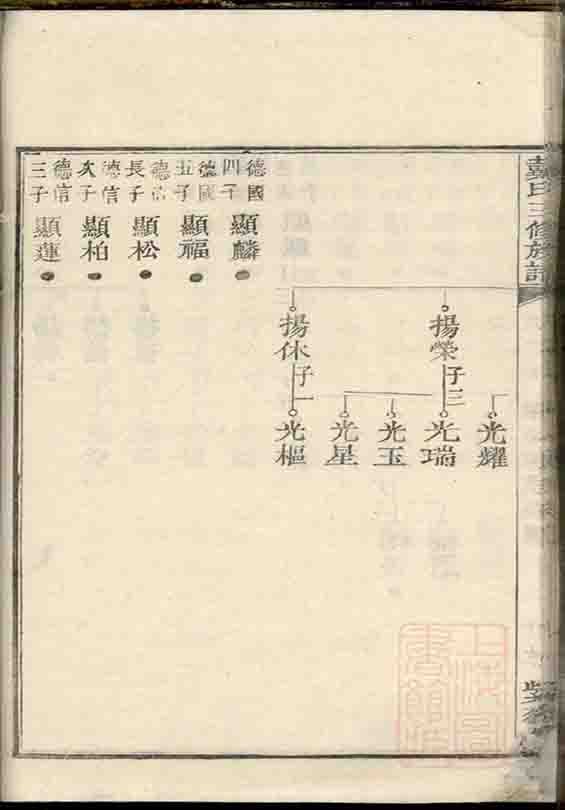 氏三修族譜
光耀
揚榮
子三
光瑞
光玉
光星
揚休
子一
光樞
德國
四子
顯麟
德國
五子
顯福
德信
長子
顯松
德信
次子
顯柏
德信
三子
顯蓮
上海圖
書館藏